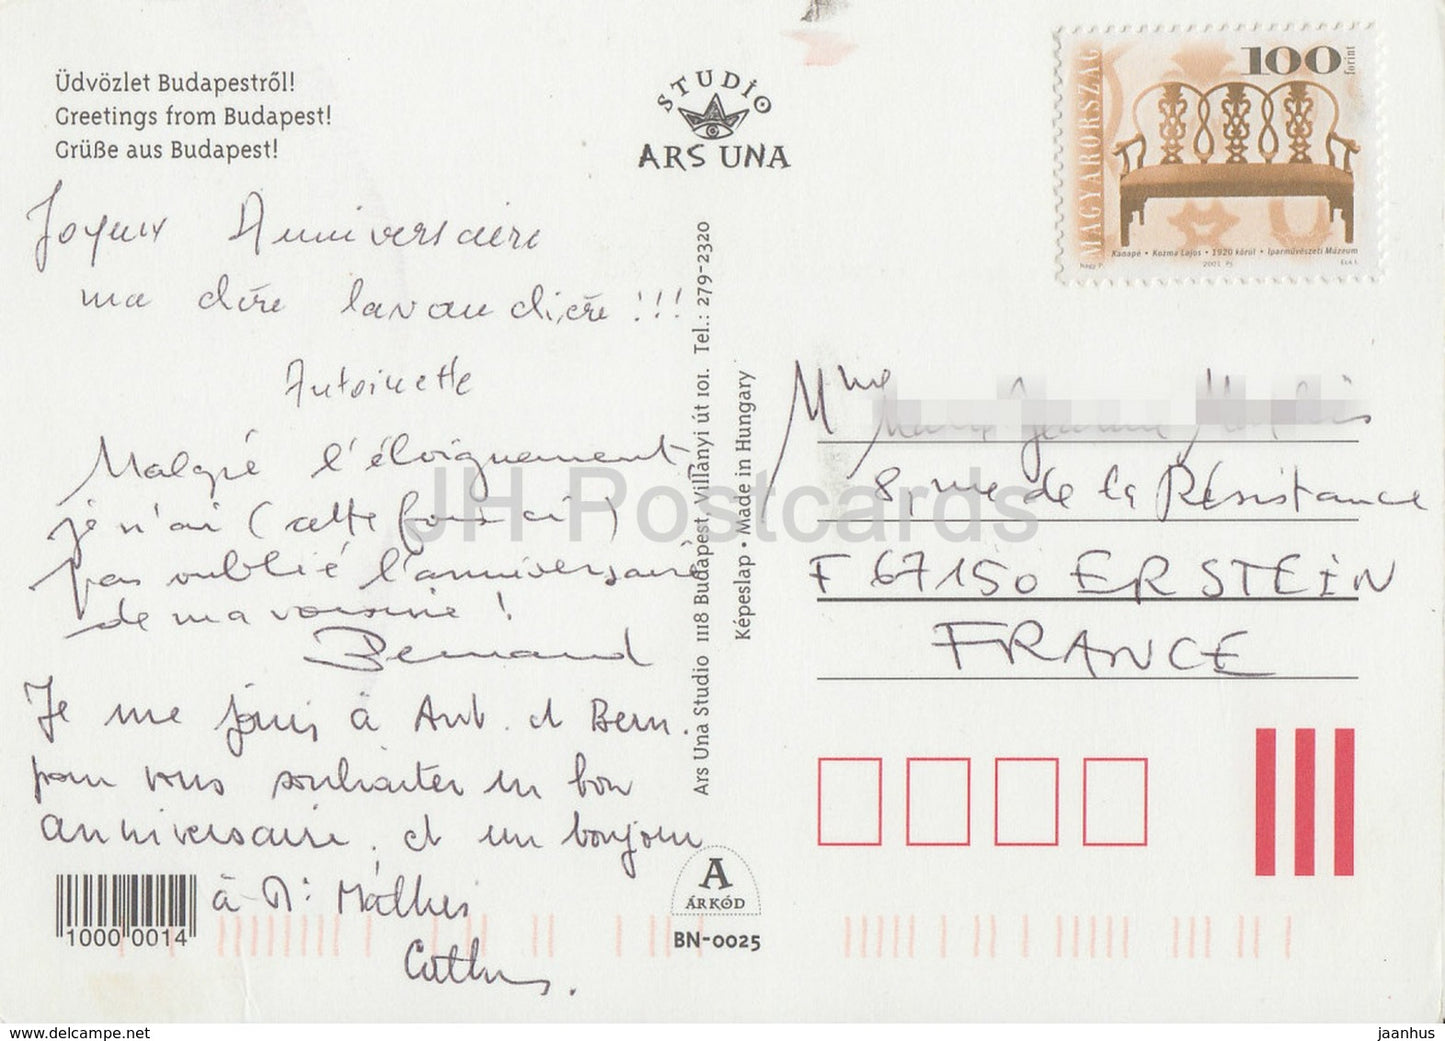 Üdvözlet Budapestről!
Greetings from Budapest!
Grüße aus Budapest!
STUDIO
ARS UNA
100
forint
MAGYARORSZÁG
Kanapé • Kozma Lajos • 1920 körül • Iparművészeti Múzeum
Nagy P.
2001
Joyeux Anniversaire
ma chère lavandière !!!
Antoinette
Malgré l'éloignement
je n'ai (cette fois ci)
pas oublié l'anniversaire
de ma voisine !
Bernard
Je me joins à Ant. et Bern.
pour vous souhaiter un bon
anniversaire. et un bonjour
à Mr Mathis
Ars Una Studio 1118 Budapest, Villányi út 101. Tel.: 279-2320
Képeslap • Made in Hungary
Mme
8, rue de la Résistance
F 67150 ERSTEIN
FRANCE
1000 0014
A
ÁRKÓD
BN-0025
JH Postcards
www.delcampe.net
jaanhus